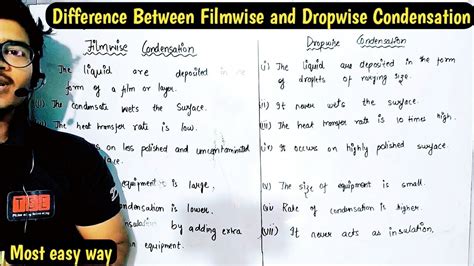 Difference Between Filmwise and Dropwise Condensation
Filmwise Condensation
The liquid are deposited in the
form of a film or layer.
The condensate wets the Surface.
The heat transfer rate is low.
on less polished and uncontaminated
equipment is large,
condensation is lower.
by adding extra
equipment.
Dropwise Condensation
i) The liquid are deposited in the form
of droplets of varying size.
(ii) It never wets the surface.
(iii) The heat transfer rate is 10 times high.
It occurs on highly polished surface.
(v) The size of equipment is small.
Rate of condensation is higher.
(vii) It never acts as insulation,
Most easy way